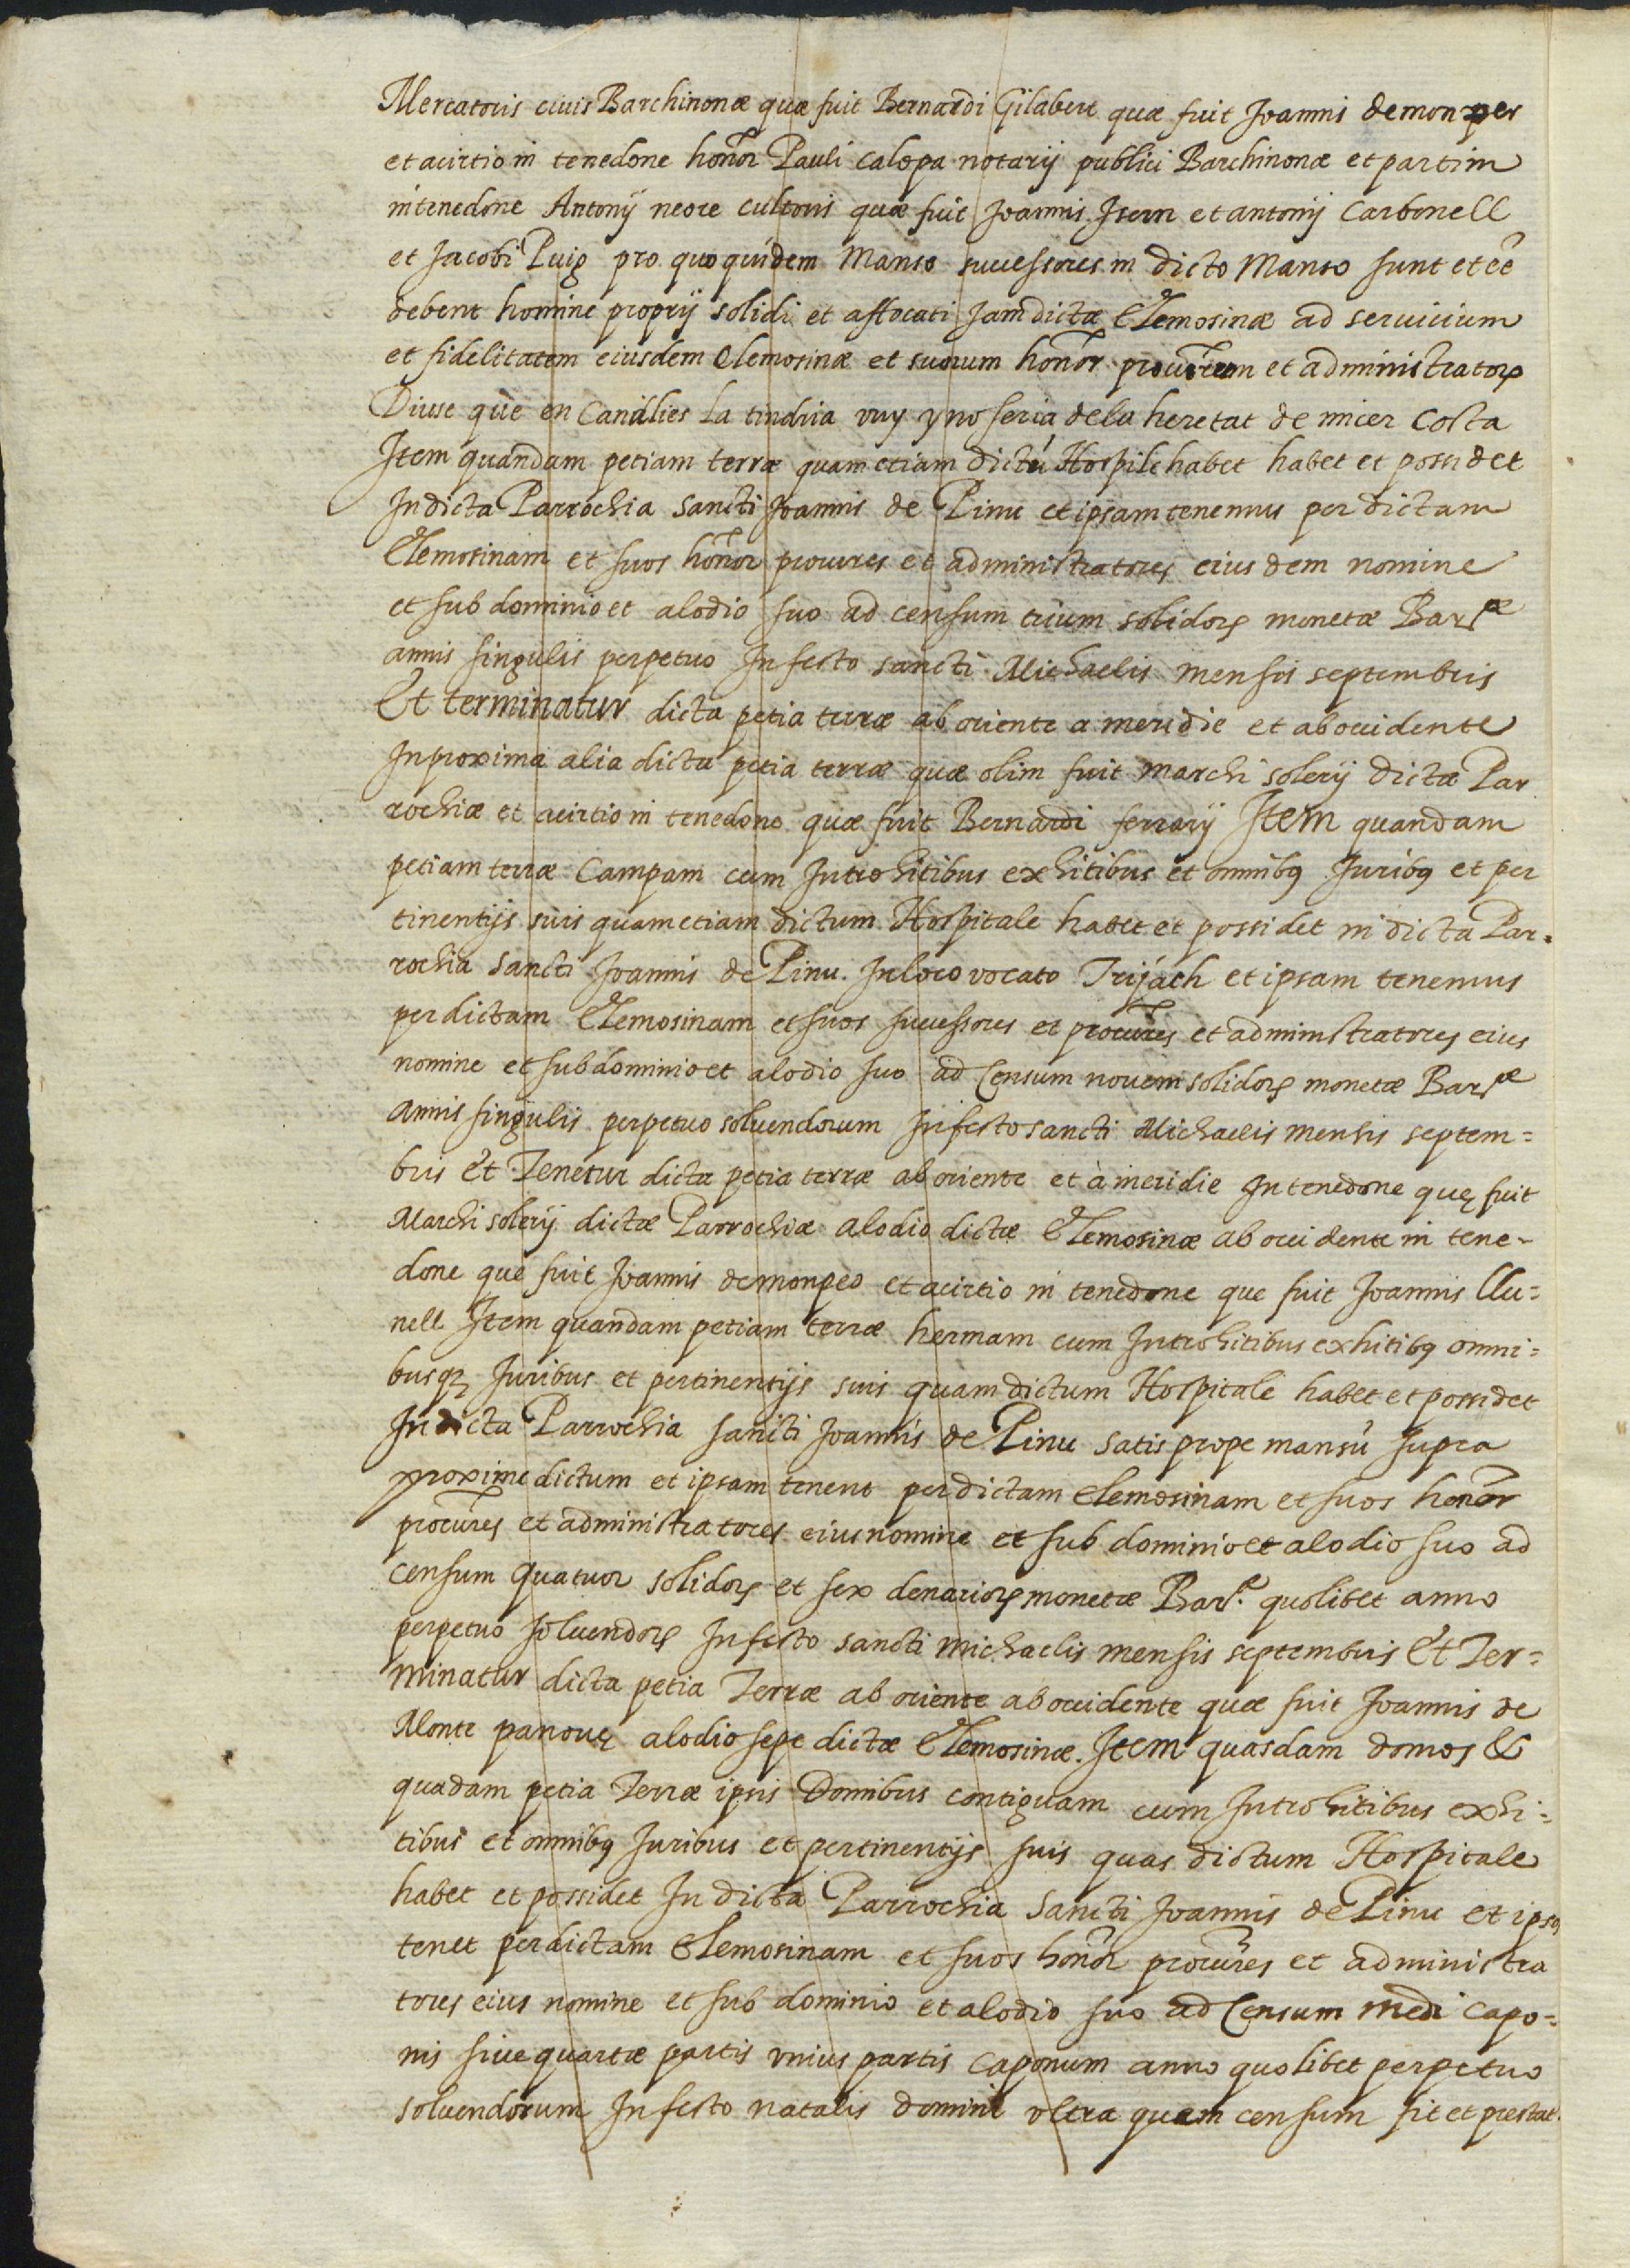 Mercatoris ciuis Barchinonæ quæ fuit Bernardi Gilabert quæ fuit Joannis demonper
et acirtio in tenedone honor Pauli calopa notarij publici Barchinonæ et partim
in tenedone Antonij neore cultoris quæ fuit Joannis Isern et antonij Carbonell
et Jacobi Puig pro quo quidem Manso successores in dicto Manso sunt et eē
debent homine proprij solidi et affocati Jam dictæ Elemosinæ ad seruicium
et fidelitatem eiusdem Elemosinæ et suorum honor procurum et administrator
Diuse que en Canillies La tindria vuy y no seria dela heretat de micer Costa
Item quandam petiam terræ quam etiam dictū Hospile habet habet et possidet
In dicta Parrochia Sancti Joannis de Pinu et ipsam tenemus per dictam
Elemosinam et suos honor procures et administratores eius dem nomine
et sub dominio et alodio suo ad censum trium solidor monetæ Barcæ
annis singulis perpetuo In festo sancti Michaelis mensis septembris
Et terminatur dicta petia terræ ab oriente a meridie et ab occidente
In proxima alia dicta petia terræ quæ olim fuit marchi solerij dictæ Par
rochiæ et acirtio in tenedone quæ fuit Bernardi ferrarij Item quandam
petiam terræ Campam cum Introhitibus exhitibus et omnibȝ Juribȝ et per
tinentijs suis quam etiam dictum Hospitale habet et possidet in dicta Par-
rochia Sancti Joannis de Pinu. In loco vocato Trijach et ipsam tenemus
per dictam Elemosinam et suos successores et procures et administratores eius
nomine et sub dominio et alodio suo ad Censum novem solidor monetæ Barcæ
annis singulis perpetuo soluendorum In festo sancti Michaelis mensis septem=
bris Et Tenetur dicta petia terræ ab oriente et à meridie In tenedone quę fuit
Marchi solerij dictæ Parrochiæ alodio dictæ Elemosinæ ab occidente in tene-
done que fuit Joannis demonpeo et acirtio in tenedone que fuit Joannis Llu=
nell Item quandam petiam terræ hermam cum Introhitibus exhitibȝ omni=
busqȝ Juribus et pertinentijs suis quam dictum Hospitale habet et possidet
In dicta Parrochia sancti Joannis de Pinu satis prope mansū supra
proxime dictum et ipsam tenent per dictam elemosinam et suos honor
procures et administratores eius nomine et sub dominio et alodio suo ad
censum quatuor solidor et sex denarior monetæ Barc.e quolibet anno
perpetuo soluendor In festo sancti michaelis mensis septembris Et Ter=
minatur dicta petia Terræ ab oriente ab occidente quæ fuit Joannis de
Monte panouę alodio sepe dictæ Elemosinæ. Item quasdam domos &
quadam petia Terræ ipsis Domibus contiguam cum Introhitibus exhi=
tibus et omnibȝ Juribus et pertinentijs suis quas dictum Hospitale
habet et possidet In dicta Parrochia Sancti Joannis de Pinu et ipsos
tenet per dictam Elemosinam et suos honor procures et administra
tores eius nomine et sub dominio et alodio suo ad Censum medi capo=
nis siue quartæ partis vnius partis caponum anno quolibet perpetuo
soluendorum In festo natalis domini vltra quem censum fit et prestat.